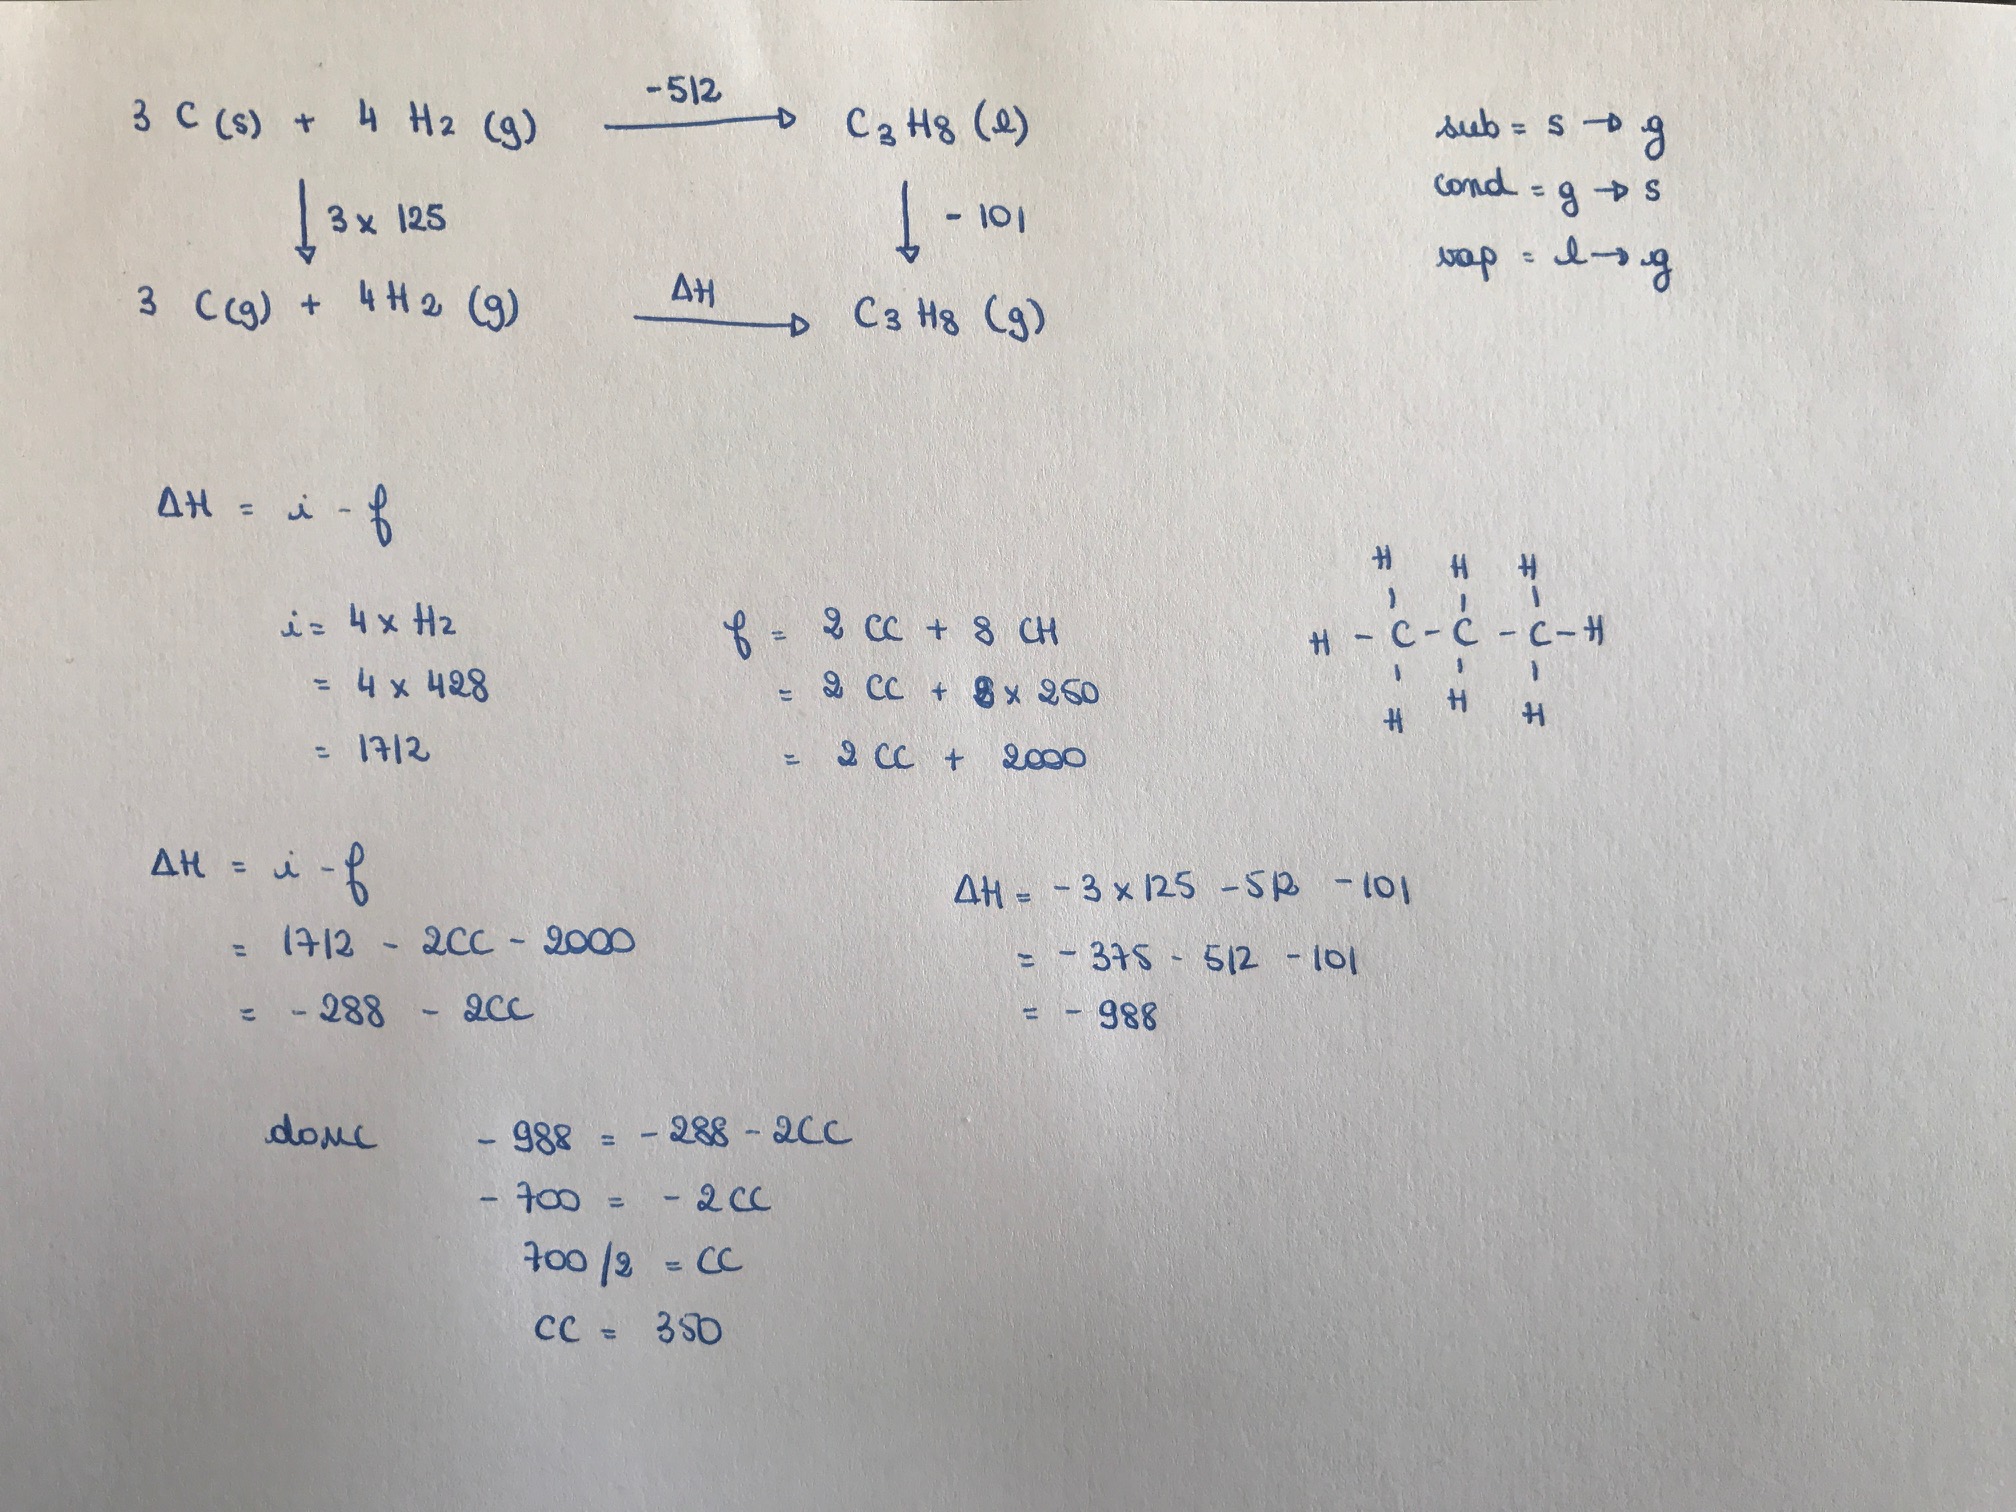 3 C (s) + 4 H2 (g) -512 → C3H8 (l)
↓ 3 x 125 ↓ - 101
3 C(g) + 4H2 (g) ΔH → C3H8 (g)
sub = s → g
cond = g → s
vap = l → g
ΔH = i - f
i = 4 x H2
= 4 x 428
= 1712
f = 2 CC + 8 CH
= 2 CC + 8 x 250
= 2 CC + 2000
H H H
H - C - C - C - H
H H H
ΔH = i - f
= 1712 - 2CC - 2000
= - 288 - 2CC
ΔH = - 3 x 125 - 512 - 101
= - 375 - 512 - 101
= - 988
donc - 988 = - 288 - 2CC
- 700 = - 2CC
700 / 2 = CC
CC = 350